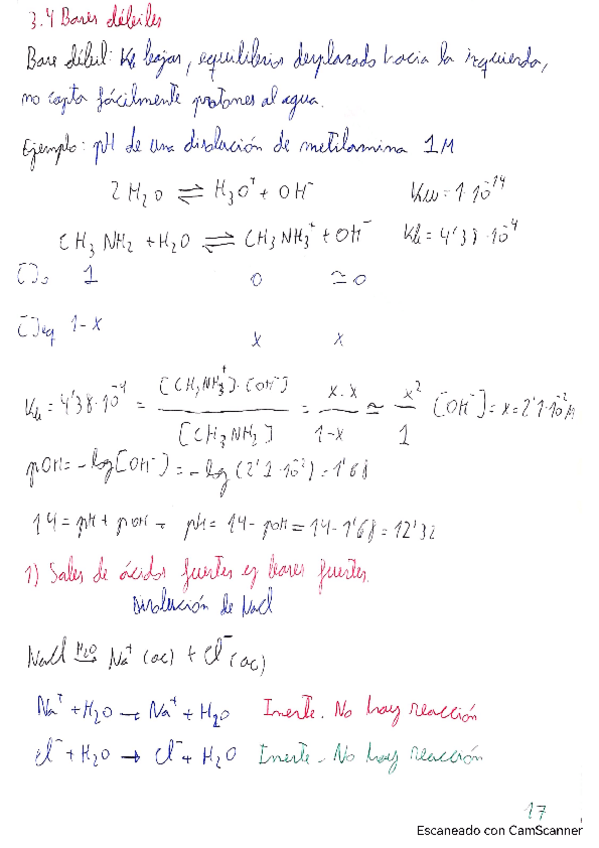 3.4 Bases débiles
Base débil: Kb bajas, equilibrio desplazado hacia la izquierda,
no capta fácilmente protones al agua.
Ejemplo: pH de una disolución de metilamina 1M
2 H₂O ⇌ H₃O⁺ + OH⁻ Kw = 1·10⁻¹⁴
CH₃NH₂ + H₂O ⇌ CH₃NH₃⁺ + OH⁻ Kb = 4'38·10⁻⁴
[]₀ 1 0 ≃ 0
[]eq 1-x x x
Kb = 4'38·10⁻⁴ = [CH₃NH₃⁺]·[OH⁻] / [CH₃NH₂] = x·x / 1-x ≃ x² / 1 [OH⁻] = x = 2'1·10⁻² M
pOH = -log[OH⁻] = -log (2'1·10⁻²) = 1'68
14 = pH + pOH → pH = 14 - pOH = 14 - 1'68 = 12'32
1) Sales de ácidos fuertes y bases fuertes.
Disolución de NaCl
NaCl H₂O→ Na⁺ (ac) + Cl⁻ (ac)
Na⁺ + H₂O → Na⁺ + H₂O Inerte. No hay reacción
Cl⁻ + H₂O → Cl⁻ + H₂O Inerte. No hay reacción
17
Escaneado con CamScanner